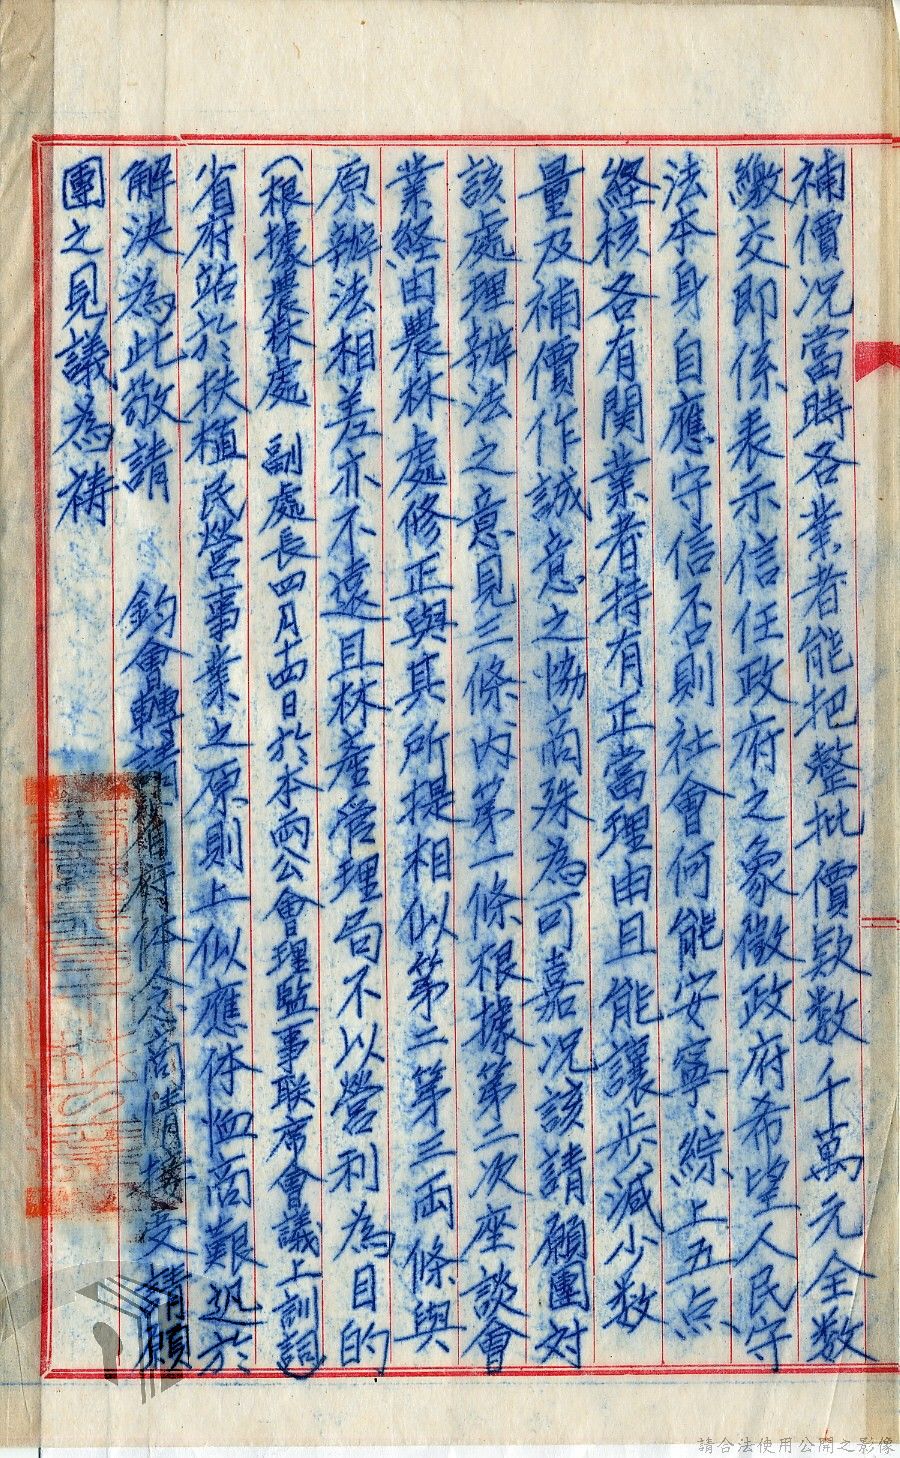 補價況當時各業者能把整批價款数千萬元全数
繳交即係表示信任政府之象徵政府希望人民守
法本身自應守信不否則社會何能安寧、綜上五点
経核各有関業者持有正當理由且能讓步減少数
量及補價作誠意之協商殊為可嘉况該請願團对
該處理辦法之意見三條内第一條根據第二次座談會
業経由農林處修正與其所提相似第二第三両條與
原辦法相差亦不遠且林産管理局不以營利為目的
（根據農林處　副處長四月十四日於本両公會理監事联席會議上訓詞）
省府站於扶植民營事業之原則上似應体恤商艱迅於
解決為此敬請　鈞會轉請　府体念商情接受請願
團之見議為祷
請合法使用公開之影像